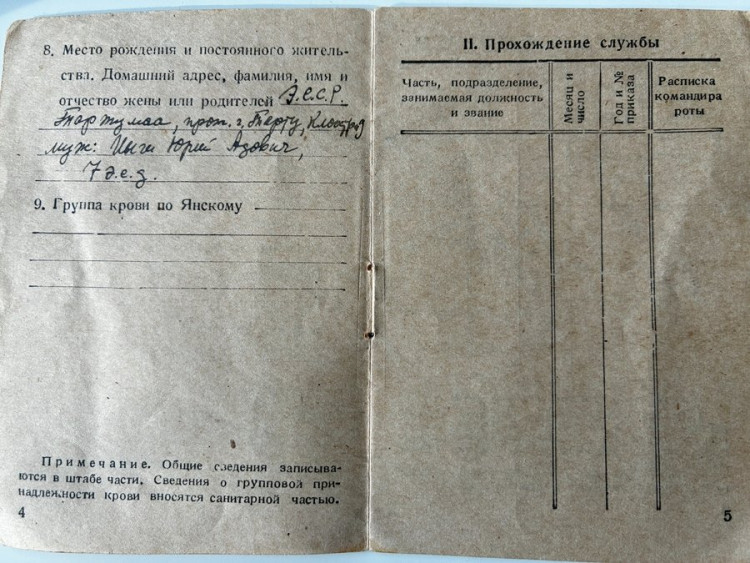 8. Место рождения и постоянного житель-
ства. Домашний адрес, фамилия, имя и
отчество жены или родителей Э.С.С.Р.
Тартумаа, прож. г. Тарту,
муж: Юрий
9. Группа крови по Янскому
Примечание. Общие сведения записыва-
ются в штабе части. Сведения о групповой при-
надлежности крови вносятся санитарной частью.
4
II. Прохождение службы
Часть, подразделение,
занимаемая должность
и звание
Месяц и
число
Год и №
приказа
Расписка
командира
роты
5